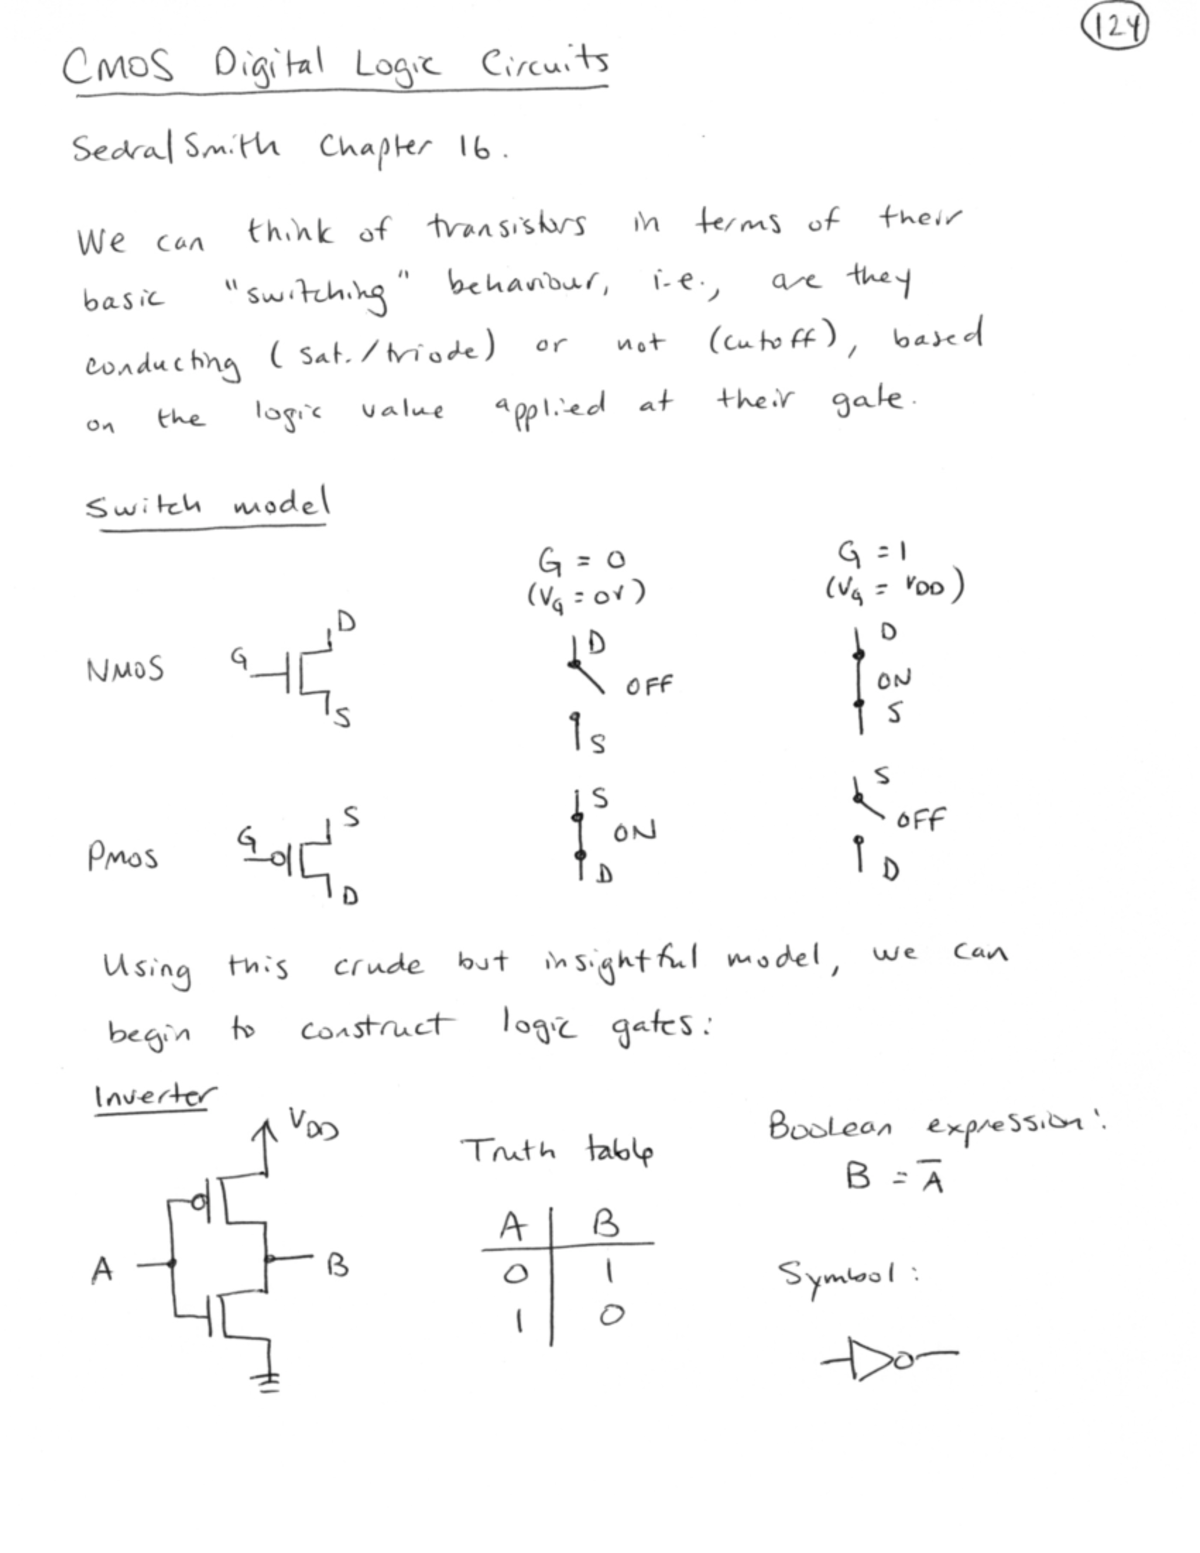 124
CMOS Digital Logic Circuits
Sedra/Smith Chapter 16.
We can think of transistors in terms of their
basic "switching" behaviour, i.e., are they
conducting (sat./triode) or not (cutoff), based
on the logic value applied at their gate.
Switch model
G = 0 G = 1
(VG = 0V) (VG = VDD)
NMOS G D S D OFF S D ON S
PMOS G S D S ON D S OFF D
Using this crude but insightful model, we can
begin to construct logic gates:
Inverter
VDD
A B
Truth table
A B
0 1
1 0
Boolean expression:
B = A̅
Symbol: